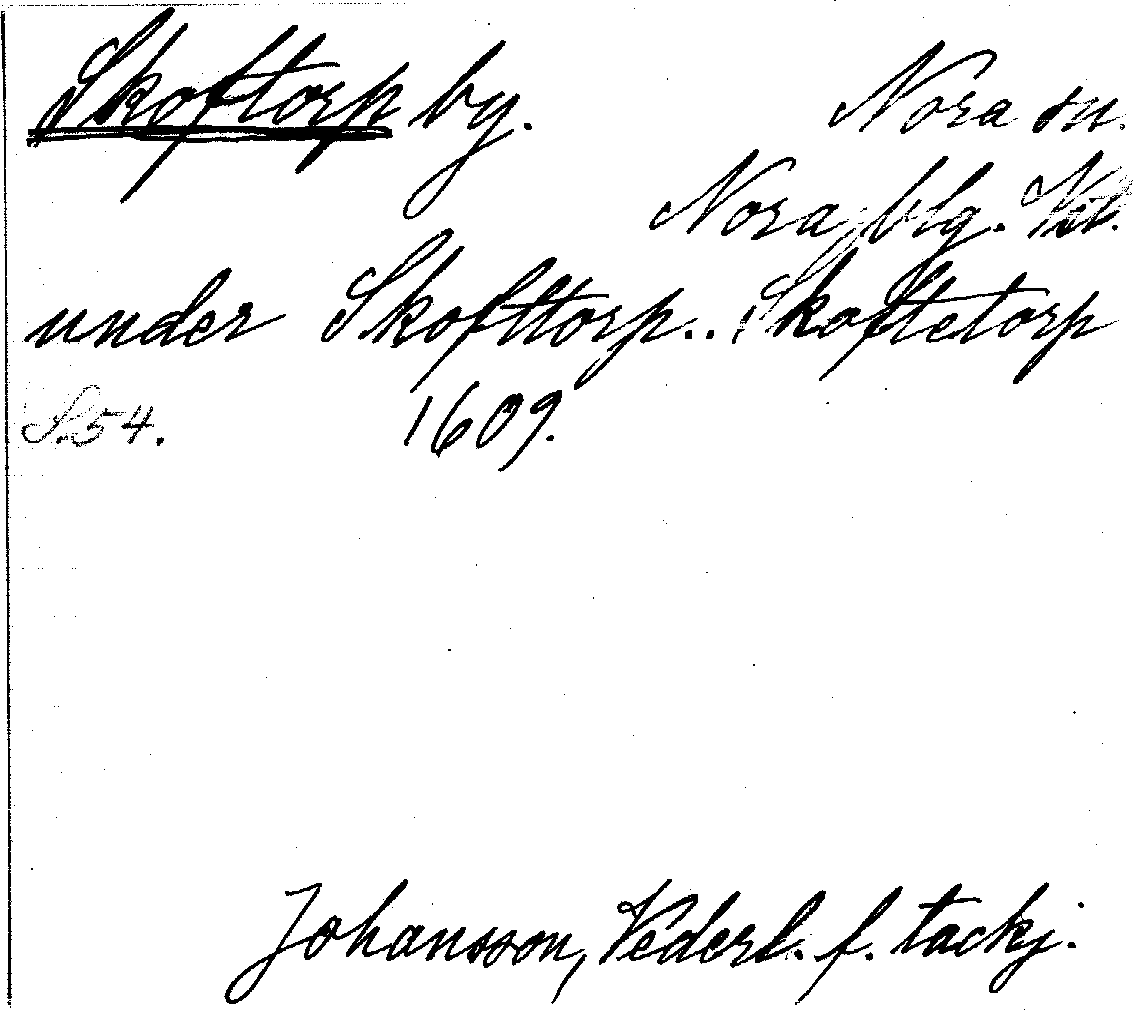 Skoftorp by. Nora sn.
Nora blg. Vstl.
under Skofttorp.. Skoftetorp
S.54. 1609.
Johansson, Vederl. f. tackj.